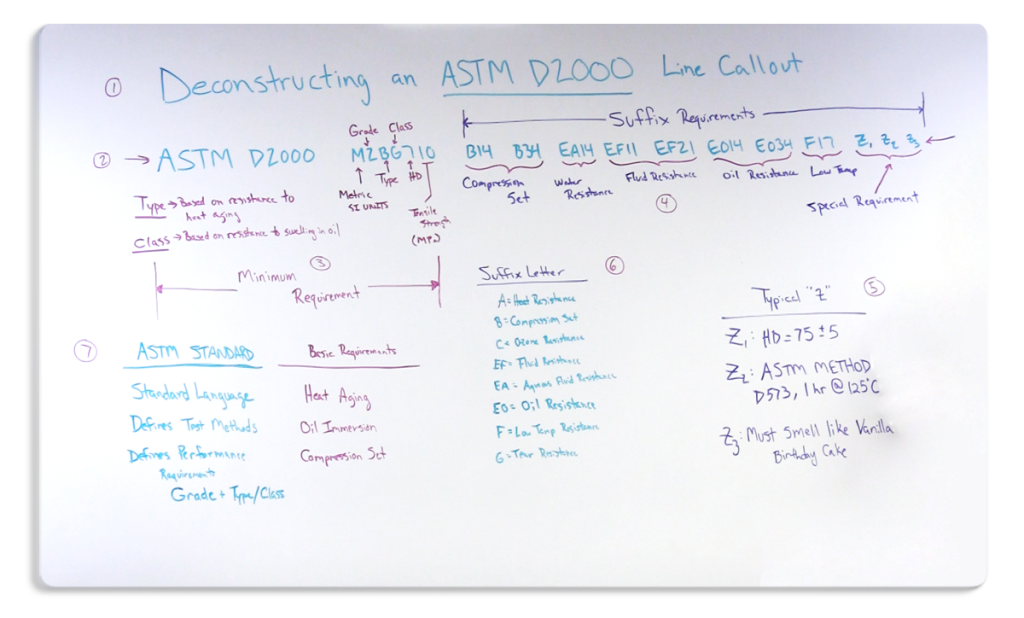 ① Deconstructing an ASTM D2000 Line Callout
Suffix Requirements
Grade Class
② → ASTM D2000 M2BG710 B14 B34 EA14 EF11 EF21 EO14 EO34 F17 Z1 Z2 Z3
Type HD
Metric
SI UNITS
Tensile
Strength
(MPa)
Compression
Set
Water
Resistance
Fluid Resistance
Oil Resistance
Low Temp
④
Special Requirement
Type → Based on resistance to
heat aging
Class → Based on resistance to swelling in oil
③
Minimum
Requirement
Suffix Letter ⑥
A = Heat Resistance
B = Compression Set
C = Ozone Resistance
EF = Fluid Resistance
EA = Aqueous Fluid Resistance
EO = Oil Resistance
F = Low Temp Resistance
G = Tear Resistance
Typical "Z" ⑤
Z1: HD = 75 ± 5
Z2: ASTM METHOD
D573, 1 hr @ 125°C
Z3: Must Smell like Vanilla
Birthday Cake
⑦ ASTM STANDARD
Standard Language
Defines Test Methods
Defines Performance
Requirements
Grade + Type/Class
Basic Requirements
Heat Aging
Oil Immersion
Compression Set